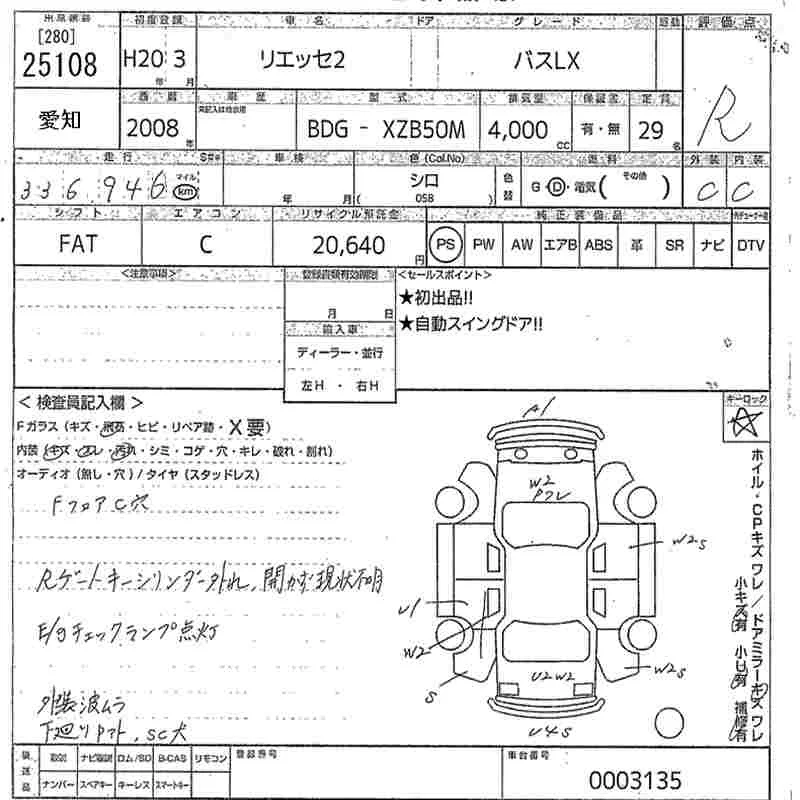 出品番号 初度登録 車名 ドア グレード 評価点
[280]
25108 H20 3 リエッセ2 バスLX
年 月
愛知 西暦 車歴 型式 排気量 保証書 定員 R
2008 年 BDG - XZB50M 4,000 CC 有・無 29 名
走行 車検 色(Col.No) 色替 燃料 外装 内装
336,946 マイル km 年 月 シロ ( 058 ) G・D・電気( その他 ) C C
シフト エアコン リサイクル預託金 純正装備品
FAT C 20,640 円 PS PW AW エアB ABS 革 SR ナビ DTV
<注意事項> 登録書類有効期限 <セールスポイント>
月 日 ★初出品!!
輸入車 ★自動スイングドア!!
ディーラー・並行
左H ・ 右H
< 検査員記入欄 > キーロック
Fガラス (キズ・飛石・ヒビ・リペア跡・X要)
内装 (キズ・スレ・汚れ・シミ・コゲ・穴・キレ・破れ・割れ)
オーディオ (無し・穴) / タイヤ (スタッドレス)
FフロアC穴
Rゲートキーシリンダー外れ、開かず現状不明
E/gチェックランプ点灯
外装波ムラ
下廻りPマト、SC大
A1
W2
Pフレ
W2S
U1
W2
S
U2W2
W2S
U4S
ホイル・CPキズワレ/ドアミラーキズワレ
小キズ有 小U有 補修有
後送品 取説 ナビ取説 ロム/SD B-CAS リモコン 登録番号 車台番号
ナンバー スペアキー キーレス スマートキー 0003135